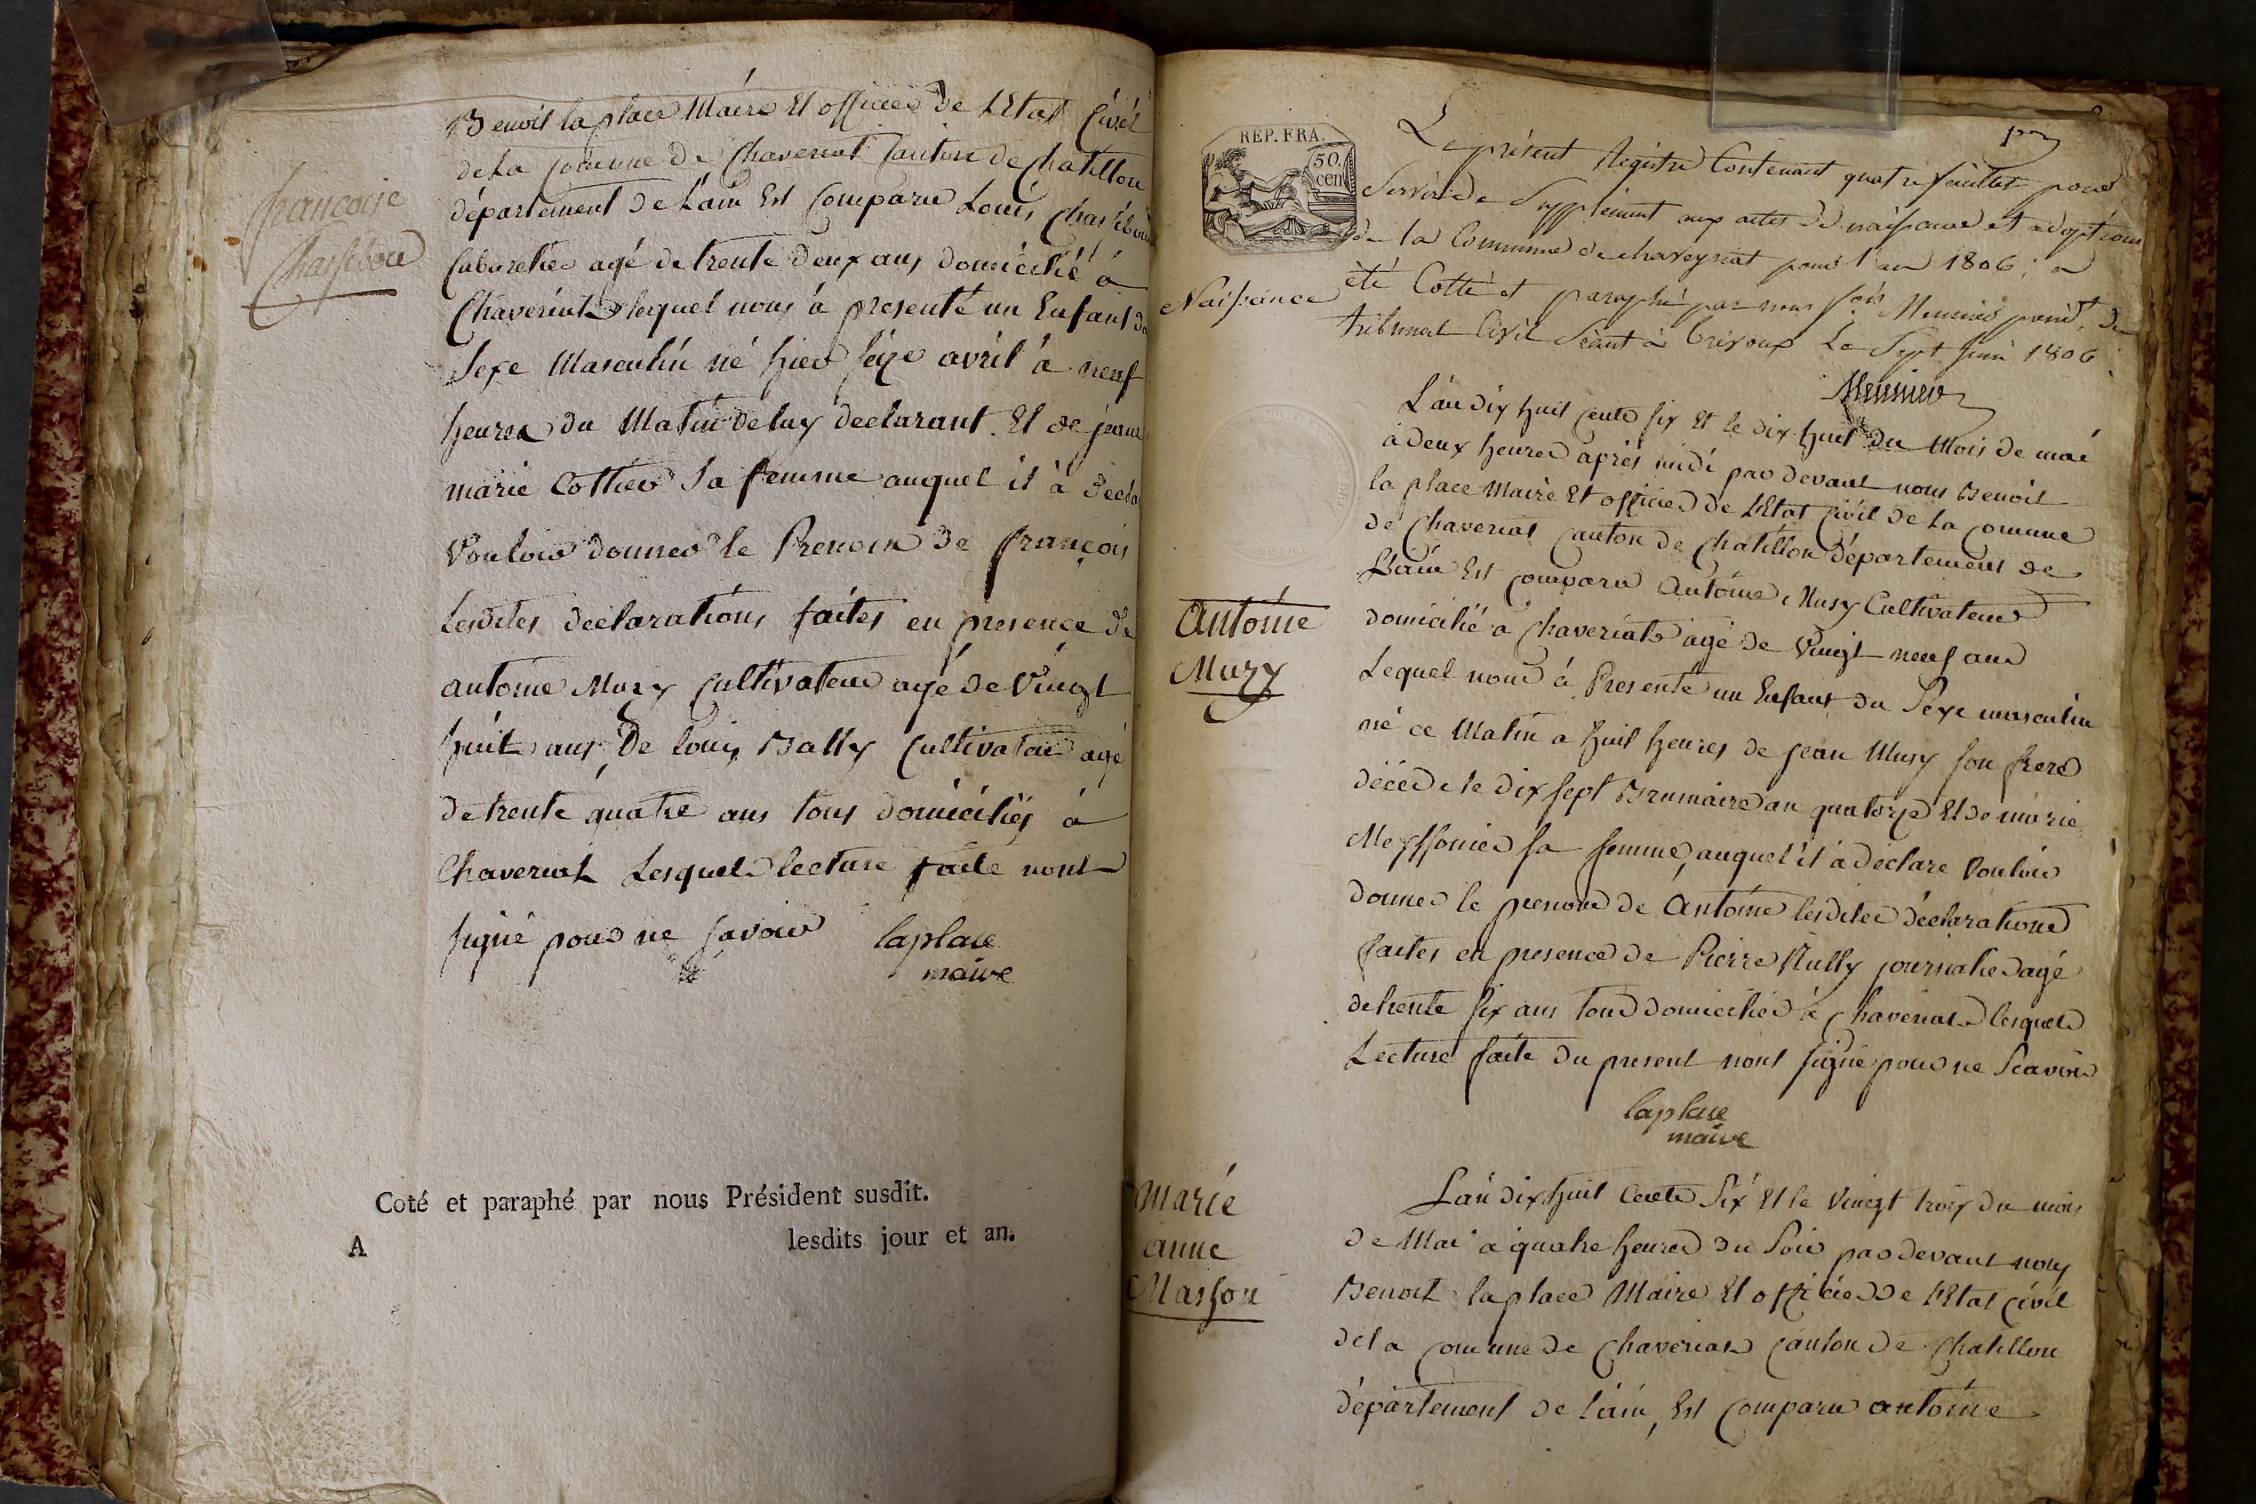 Benoit laplace Maire Et officier de L'Etat Civil
de La Comune de Chaveriat Canton de Chatillon
département de L'ain Est Comparu Louis
Cabaretier agé de trente deux ans domicilié à
Chaveriat lequel nous à presenté un Enfant du
Sexe Masculin né hier seize avril à neuf
heures du Matin de luy declarant. Et de jeanne
marie Cottier Sa femme auquel il à
Vouloir donner le Prenom de françois
Lesdites declarations faites en presence de
antoine Muzy Cultivateur agé de Vingt
huit ans, De louis Bally Cultivateur agé
de trente quatre ans tous domiciliés à
Chaveriat Lesquels lecture faite nont
signé pour ne savoir laplace
maire
françois
Coté et paraphé par nous Président susdit.
lesdits jour et an.
A
REP. FRA.
50.
cen
Le présent Registre Contenant quatre feuillets pour
Servir de Supplément aux actes de naissance et adoptions
de la Commune de chaveyriat pour l'an 1806; a
été Cotté et paraphé par nous Meunier présidt. du
tribunal Civil Séant à Trévoux Le Sept juin 1806
Meunier
Naissance
L'an dix huit cents six Et le dix huit du Mois de mai
à deux heures après midi par devant nous Benoit
la place Maire Et officier de L'Etat Civil de La Comune
de Chaveriat Canton de Chatillon département de
L'ain Est comparu Antoine Muzy Cultivateur
Antoine
Muzy
domicilié à Chaveriat agé de Vingt neuf ans
Lequel nous à Presenté un Enfant du Sexe masculin
né ce Matin a huit heures de jean Muzy son frere
décédé le dix sept Brumaire an quatorze Et de marie
Meyssonier sa femme, auquel il à déclaré Vouloir
donner le prenom de Antoine lesdites déclarations
faites en presence de Pierre journalier agé
de trente six ans tous domiciliés à Chaveriat lesquels
Lecture faite du present nont signé pour ne Scavoir
laplace
maire
Marie
anne
Masson
L'an dix huit Cents Six Et le Vingt trois du mois
de Mai à quatre heures du Soir par devant nous
Benoit laplace Maire Et officier de L'Etat Civil
de la Comune de Chaveriat Canton de Chatillon
département de L'ain, Est Comparu antoine